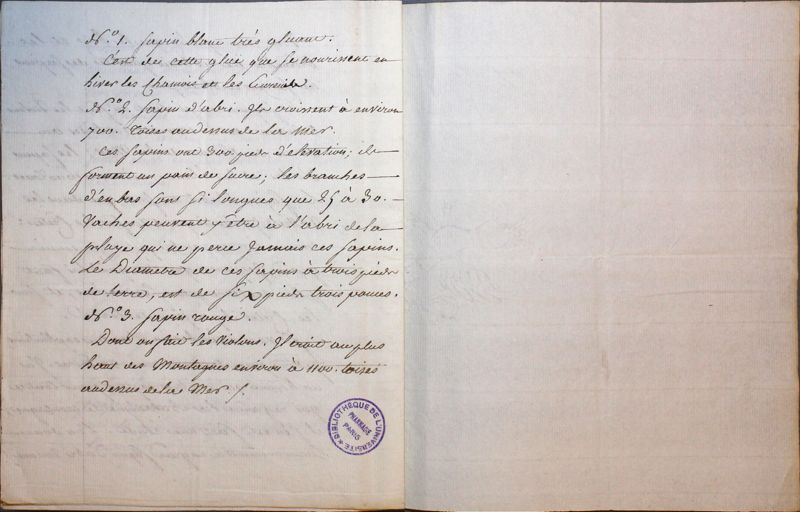 N.° 1. Sapin blanc très gluant.
C'est de cette glue que se nourrissent en
hiver les Chamois et les
N.° 2. Sapin d'abri. Ils croissent à environ
700. toises audessus de la Mer.
Ces sapins ont 300 pieds d'élévation; ils
forment un pain de sucre; les branches
d'en bas sont si longues que 25 à 30.
Vaches peuvent y être à l'abri de la
pluye qui ne perce Jamais ces sapins.
Le Diametre de ces sapins à trois pieds
de terre, est de six pieds trois pouces.
N.° 3. Sapin rouge.
Dont on fait les violons. Il croit au plus
haut des Montagnes environ à 1100. toises
audessus de la Mer /.
BIBLIOTHÈQUE DE L'UNIVERSITÉ
PHARMACIE
PARIS